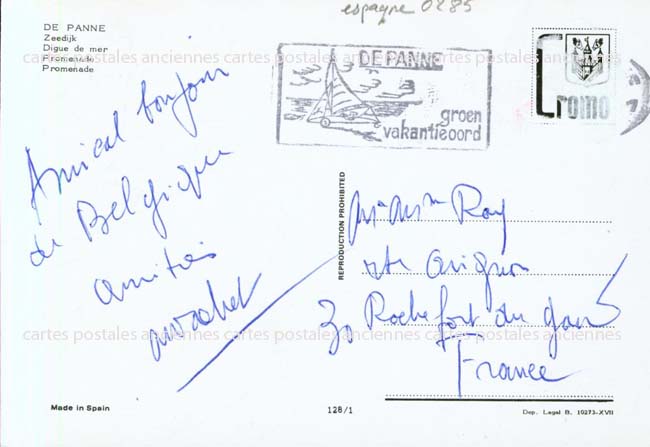 espagne 0285
DE PANNE
Zeedijk
Digue de mer
Promenade
Promenade
cartes postales anciennes cartes postales anciennes cartes postales anciennes
DE PANNE
groen
vakantieoord
Cromo
Amical bonjour
de Belgique
amitiés
REPRODUCTION PROHIBITED
Mr Mme Roy
rte Avignon
30 Rochefort du gard
France
cartes postales anciennes cartes postales anciennes cartes postales anciennes
Made in Spain
128/1
Dep. Legal B. 10273-XVII